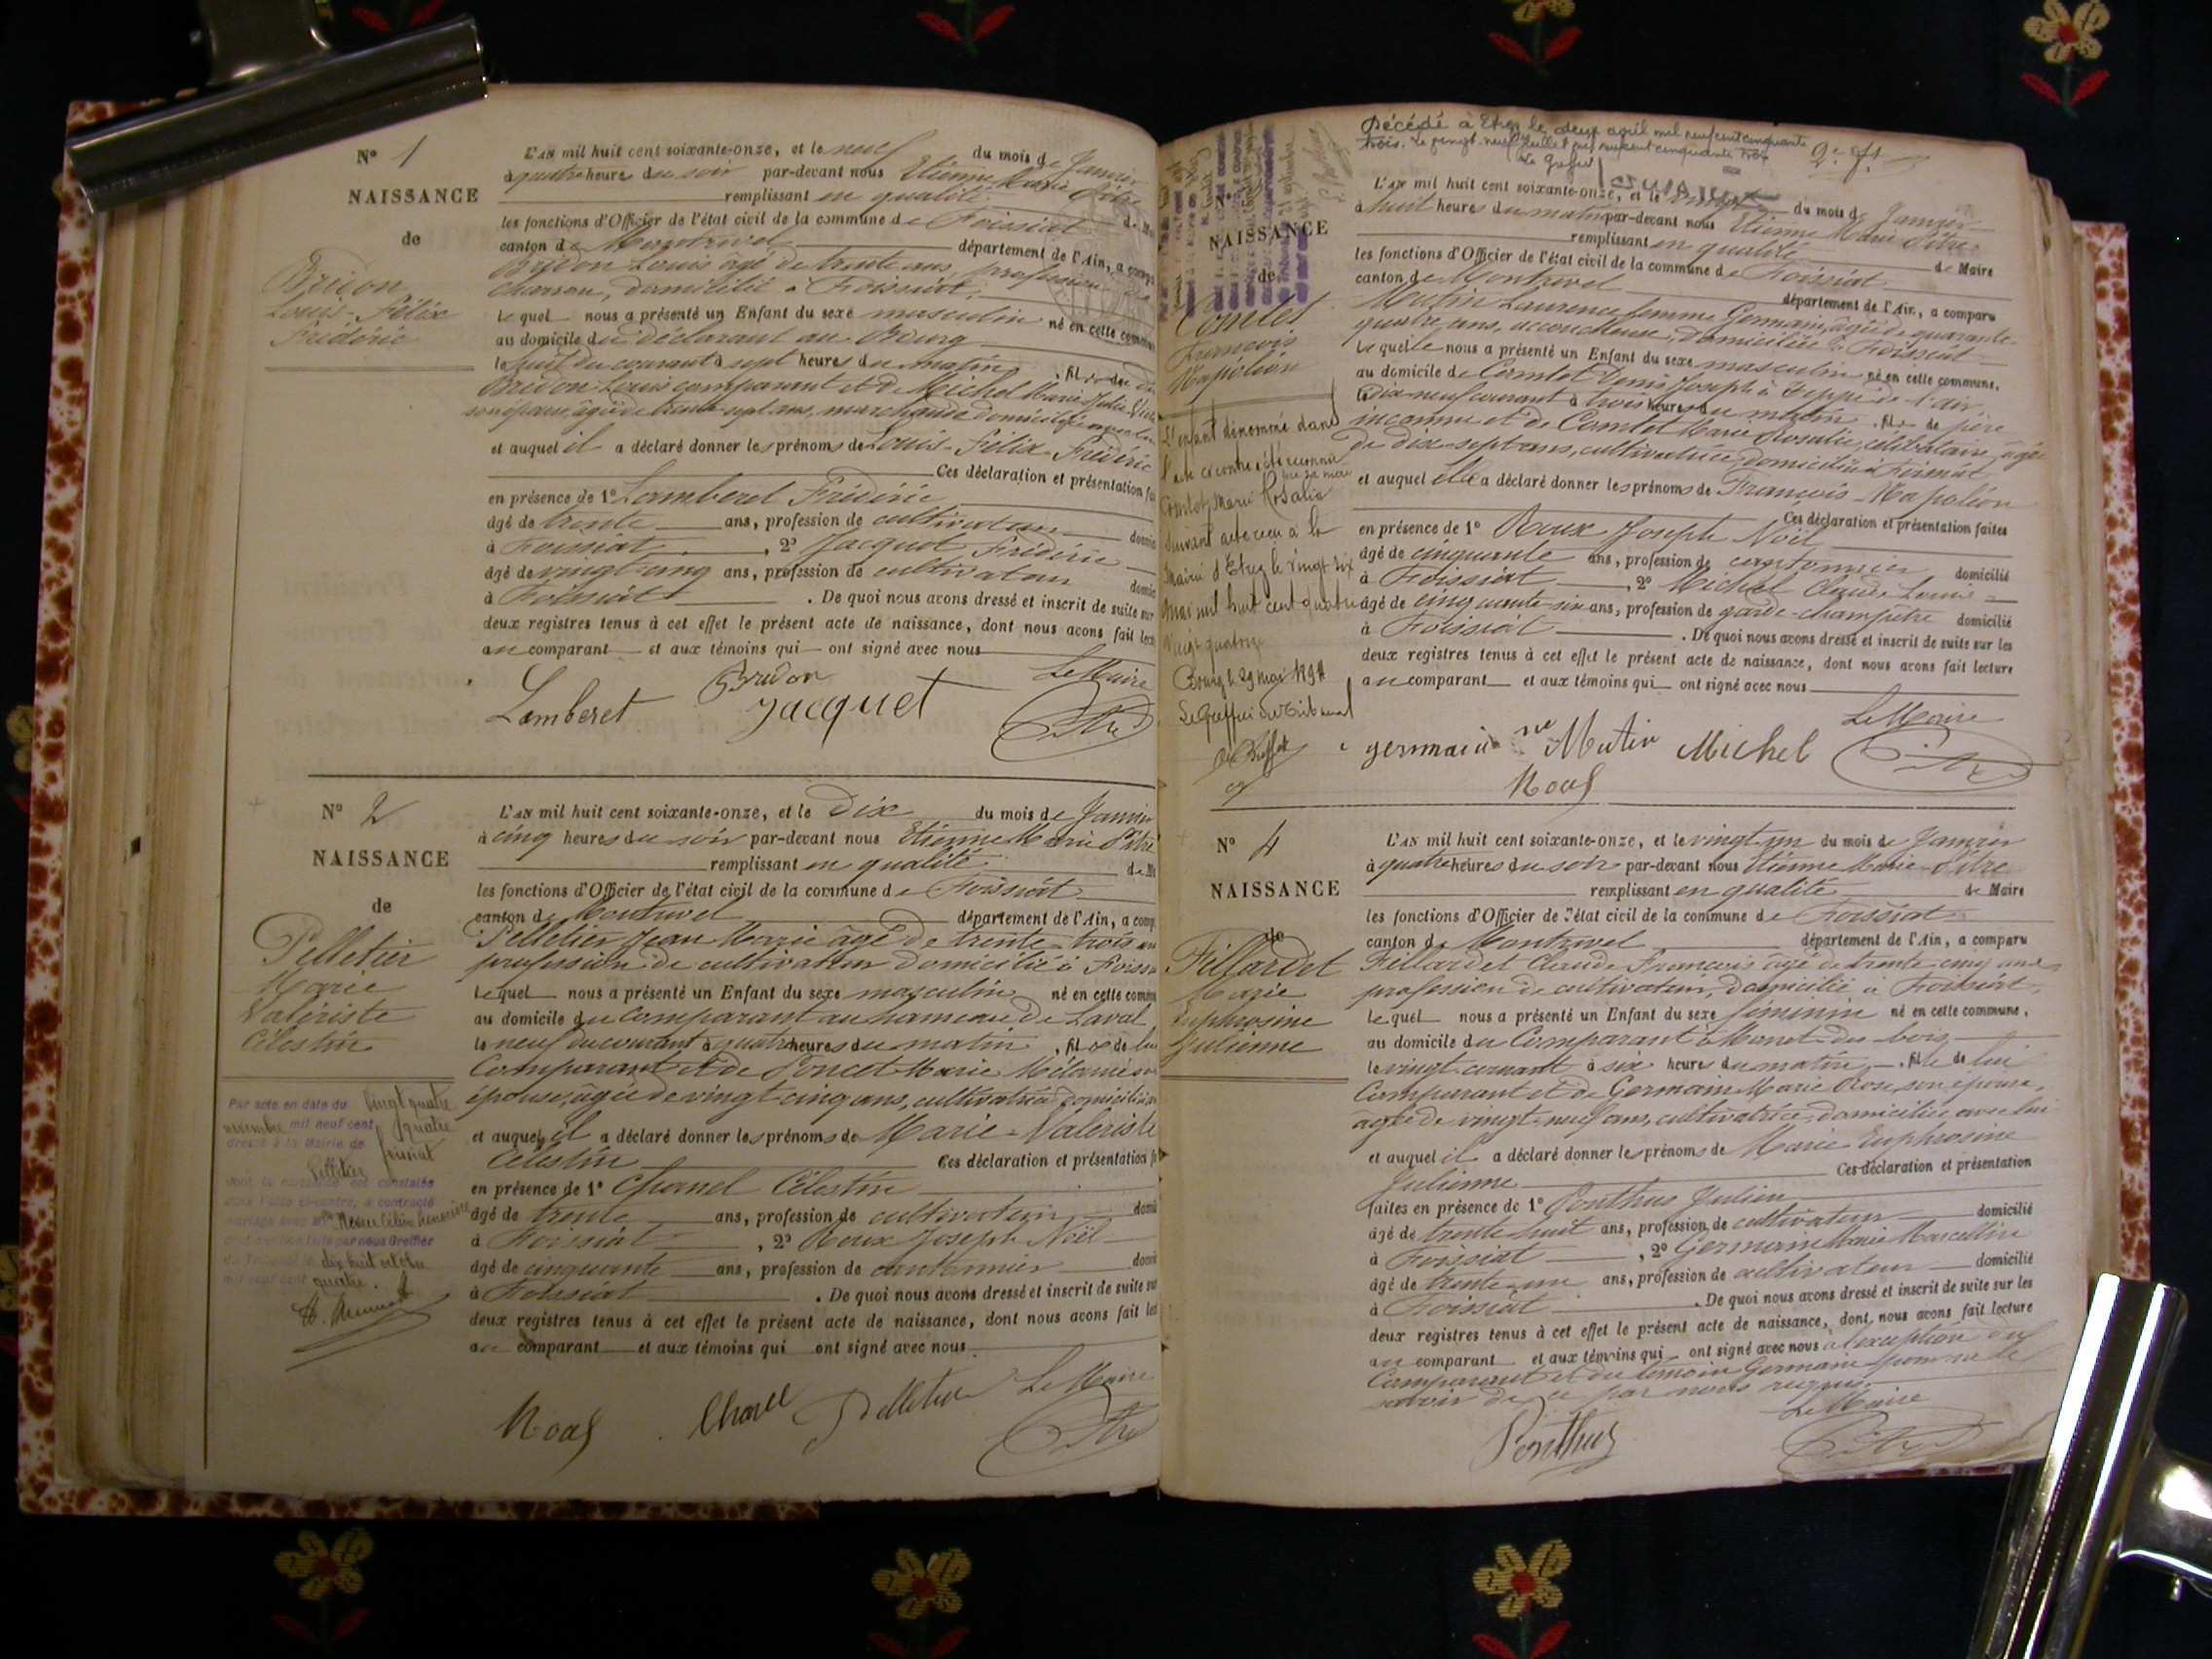 N° 1
NAISSANCE
de
Bridon
Louis-Félix
Frédéric
L'AN mil huit cent soixante-onze, et le neuf du mois de Janvier
à quatre heures du soir par-devant nous Etienne Marie Pitre
remplissant en qualité
les fonctions d'Officier de l'état civil de la commune de Foissiat
canton de Montrevel département de l'Ain, a comparu
Bridon Louis âgé de trente ans, profession de
charron, domicilié à Foissiat,
lequel nous a présenté un Enfant du sexe masculin né en cette commune
au domicile du déclarant au Bourg
le huit du courant à sept heures du matin, fils de
Bridon Louis comparant et de Michel Marie Julie
son épouse, âgée de trente-sept ans, marchande domiciliée avec lui
et auquel il a déclaré donner les prénoms de Louis-Félix-Frédéric
Ces déclaration et présentation
en présence de 1° Lamberet Frédéric
âgé de trente ans, profession de cultivateur
à Foissiat, 2° Jacquet Frédéric
âgé de vingt cinq ans, profession de cultivateur
à Foissiat. De quoi nous avons dressé et inscrit de suite sur
deux registres tenus à cet effet le présent acte de naissance, dont nous avons fait
au comparant et aux témoins qui ont signé avec nous
Le Maire
Bridon
Lamberet Jacquet Pitre
N° 2
NAISSANCE
de
Pelletier
Marie
Valériste
Célestin
Par acte en date du vingt quatre
novembre mil neuf cent quatre
dressé à la Mairie de
Foissiat
Pelletier
dont la naissance est constatée
dans l'acte ci-contre, a contracté
mariage avec
par nous Greffier
du Tribunal le dix huit
mil neuf cent quatre.
L'AN mil huit cent soixante-onze, et le dix du mois de Janvier
à cinq heures du soir par-devant nous Etienne Marie Pitre
remplissant en qualité
les fonctions d'Officier de l'état civil de la commune de Foissiat
canton de Montrevel département de l'Ain, a comp
Pelletier Jean Marie âgé de trente-trois ans
profession de cultivateur domicilié à Foissiat
lequel nous a présenté un Enfant du sexe masculin né en cette commune
au domicile du comparant au hameau de Laval
le neuf du courant à quatre heures du matin, fils de lui
Comparant et de Poncet Marie Mélanie son
épouse, âgée de vingt cinq ans, cultivatrice domiciliée
et auquel il a déclaré donner les prénoms de Marie-Valériste
Célestin Ces déclaration et présentation
en présence de 1° Chanel Célestin
âgé de trente ans, profession de cultivateur
à Foissiat, 2° Roux Joseph Noël
âgé de cinquante ans, profession de cantonnier
à Foissiat. De quoi nous avons dressé et inscrit de suite sur
deux registres tenus à cet effet le présent acte de naissance, dont nous avons fait
au comparant et aux témoins qui ont signé avec nous
Le Maire
Chanel Pelletier Pitre
Décédé à Etrez le deux avril mil neuf cent cinquante
trois. Le vingt-neuf juillet mil neuf cent cinquante trois
Le Greffier
N°
NAISSANCE
de
Comtet
François
Napoléon
L'enfant dénommé dans
l'acte ci contre a été reconnu
par sa mère
Comtet Marie Rosalie
suivant acte reçu à la
Mairie d'Etrez le vingt six
mai mil huit cent quatre
vingt quatorze
Bourg le 29 mai 1894
Le Greffier du Tribunal
L'AN mil huit cent soixante-onze, et le vingt du mois de Janvier
à huit heures du matin par-devant nous Etienne Marie Pitre
remplissant en qualité de Maire
les fonctions d'Officier de l'état civil de la commune de Foissiat
canton de Montrevel département de l'Ain, a comparu
Mutin Laurence femme Germain, âgée de quarante-
quatre ans, accoucheuse, domiciliée à Foissiat
laquelle nous a présenté un Enfant du sexe masculin né en cette commune,
au domicile de Comtet Denis Joseph à
le dix-neuf courant à trois heures du matin, fils de père
inconnu et de Comtet Marie Rosalie, célibataire, âgée
de dix-sept ans, cultivatrice domiciliée à Foissiat
et auquel elle a déclaré donner les prénoms de François-Napoléon
Ces déclaration et présentation faites
en présence de 1° Roux Joseph Noël
âgé de cinquante ans, profession de cantonnier domicilié
à Foissiat, 2° Michel Claude Louis
âgé de cinquante-six ans, profession de garde-champêtre domicilié
à Foissiat. De quoi nous avons dressé et inscrit de suite sur les
deux registres tenus à cet effet le présent acte de naissance, dont nous avons fait lecture
au comparant et aux témoins qui ont signé avec nous
Le Maire
germain née Mutin Michel Pitre
N° 4
NAISSANCE
de
Fillardet
Marie
Euphrosine
Julienne
L'AN mil huit cent soixante-onze, et le vingt-un du mois de Janvier
à quatre heures du soir par-devant nous Etienne Marie Pitre
remplissant en qualité de Maire
les fonctions d'Officier de l'état civil de la commune de Foissiat
canton de Montrevel département de l'Ain, a comparu
Fillardet Claude François âgé de trente-cinq ans
profession de cultivateur, domicilié à Foissiat,
lequel nous a présenté un Enfant du sexe féminin né en cette commune,
au domicile du Comparant à
le vingt courant à six heure du matin, fille de lui
Comparant et de Germain Marie Rose, son épouse,
âgée de vingt-neuf ans, cultivatrice, domiciliée avec lui
et auquel il a déclaré donner les prénoms de Marie Euphrosine
Julienne Ces déclaration et présentation
faites en présence de 1° Ponthus Julien
âgé de trente huit ans, profession de cultivateur domicilié
à Foissiat, 2° Germain Marie Marcellin
âgé de trente-un ans, profession de cultivateur domicilié
à Foissiat. De quoi nous avons dressé et inscrit de suite sur les
deux registres tenus à cet effet le présent acte de naissance, dont nous avons fait lecture
au comparant et aux témoins qui ont signé avec nous à l'exception du
Comparant et du témoin Germain pour ne le
savoir de ce par nous requis.
Le Maire
Ponthus Pitre